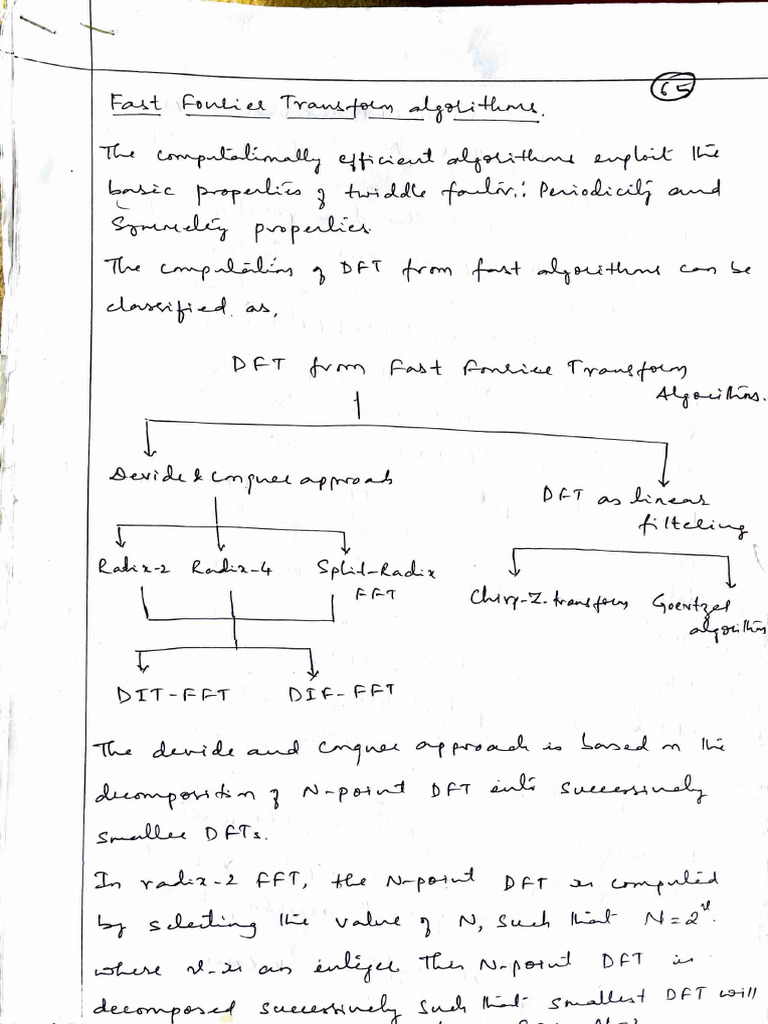 65
Fast Fourier Transform algorithms.
The computationally efficient algorithms exploit the
basic properties of twiddle factor: Periodicity and
Symmetry properties.
The computation of DFT from fast algorithms can be
classified as,
DFT from Fast Fourier Transform
Algorithms.
Devide & conquer approach
DFT as linear
filtering
Radix-2 Radix-4 Split-Radix
FFT
Chirp-Z-transform Goertzel
algorithm
DIT-FFT DIF-FFT
The devide and conquer approach is based on the
decomposition of N-point DFT into successively
smaller DFTs.
In radix-2 FFT, the N-point DFT is computed
by selecting the value of N, such that N=2
where is an integer. The N-point DFT is
decomposed successively such that smallest DFT will